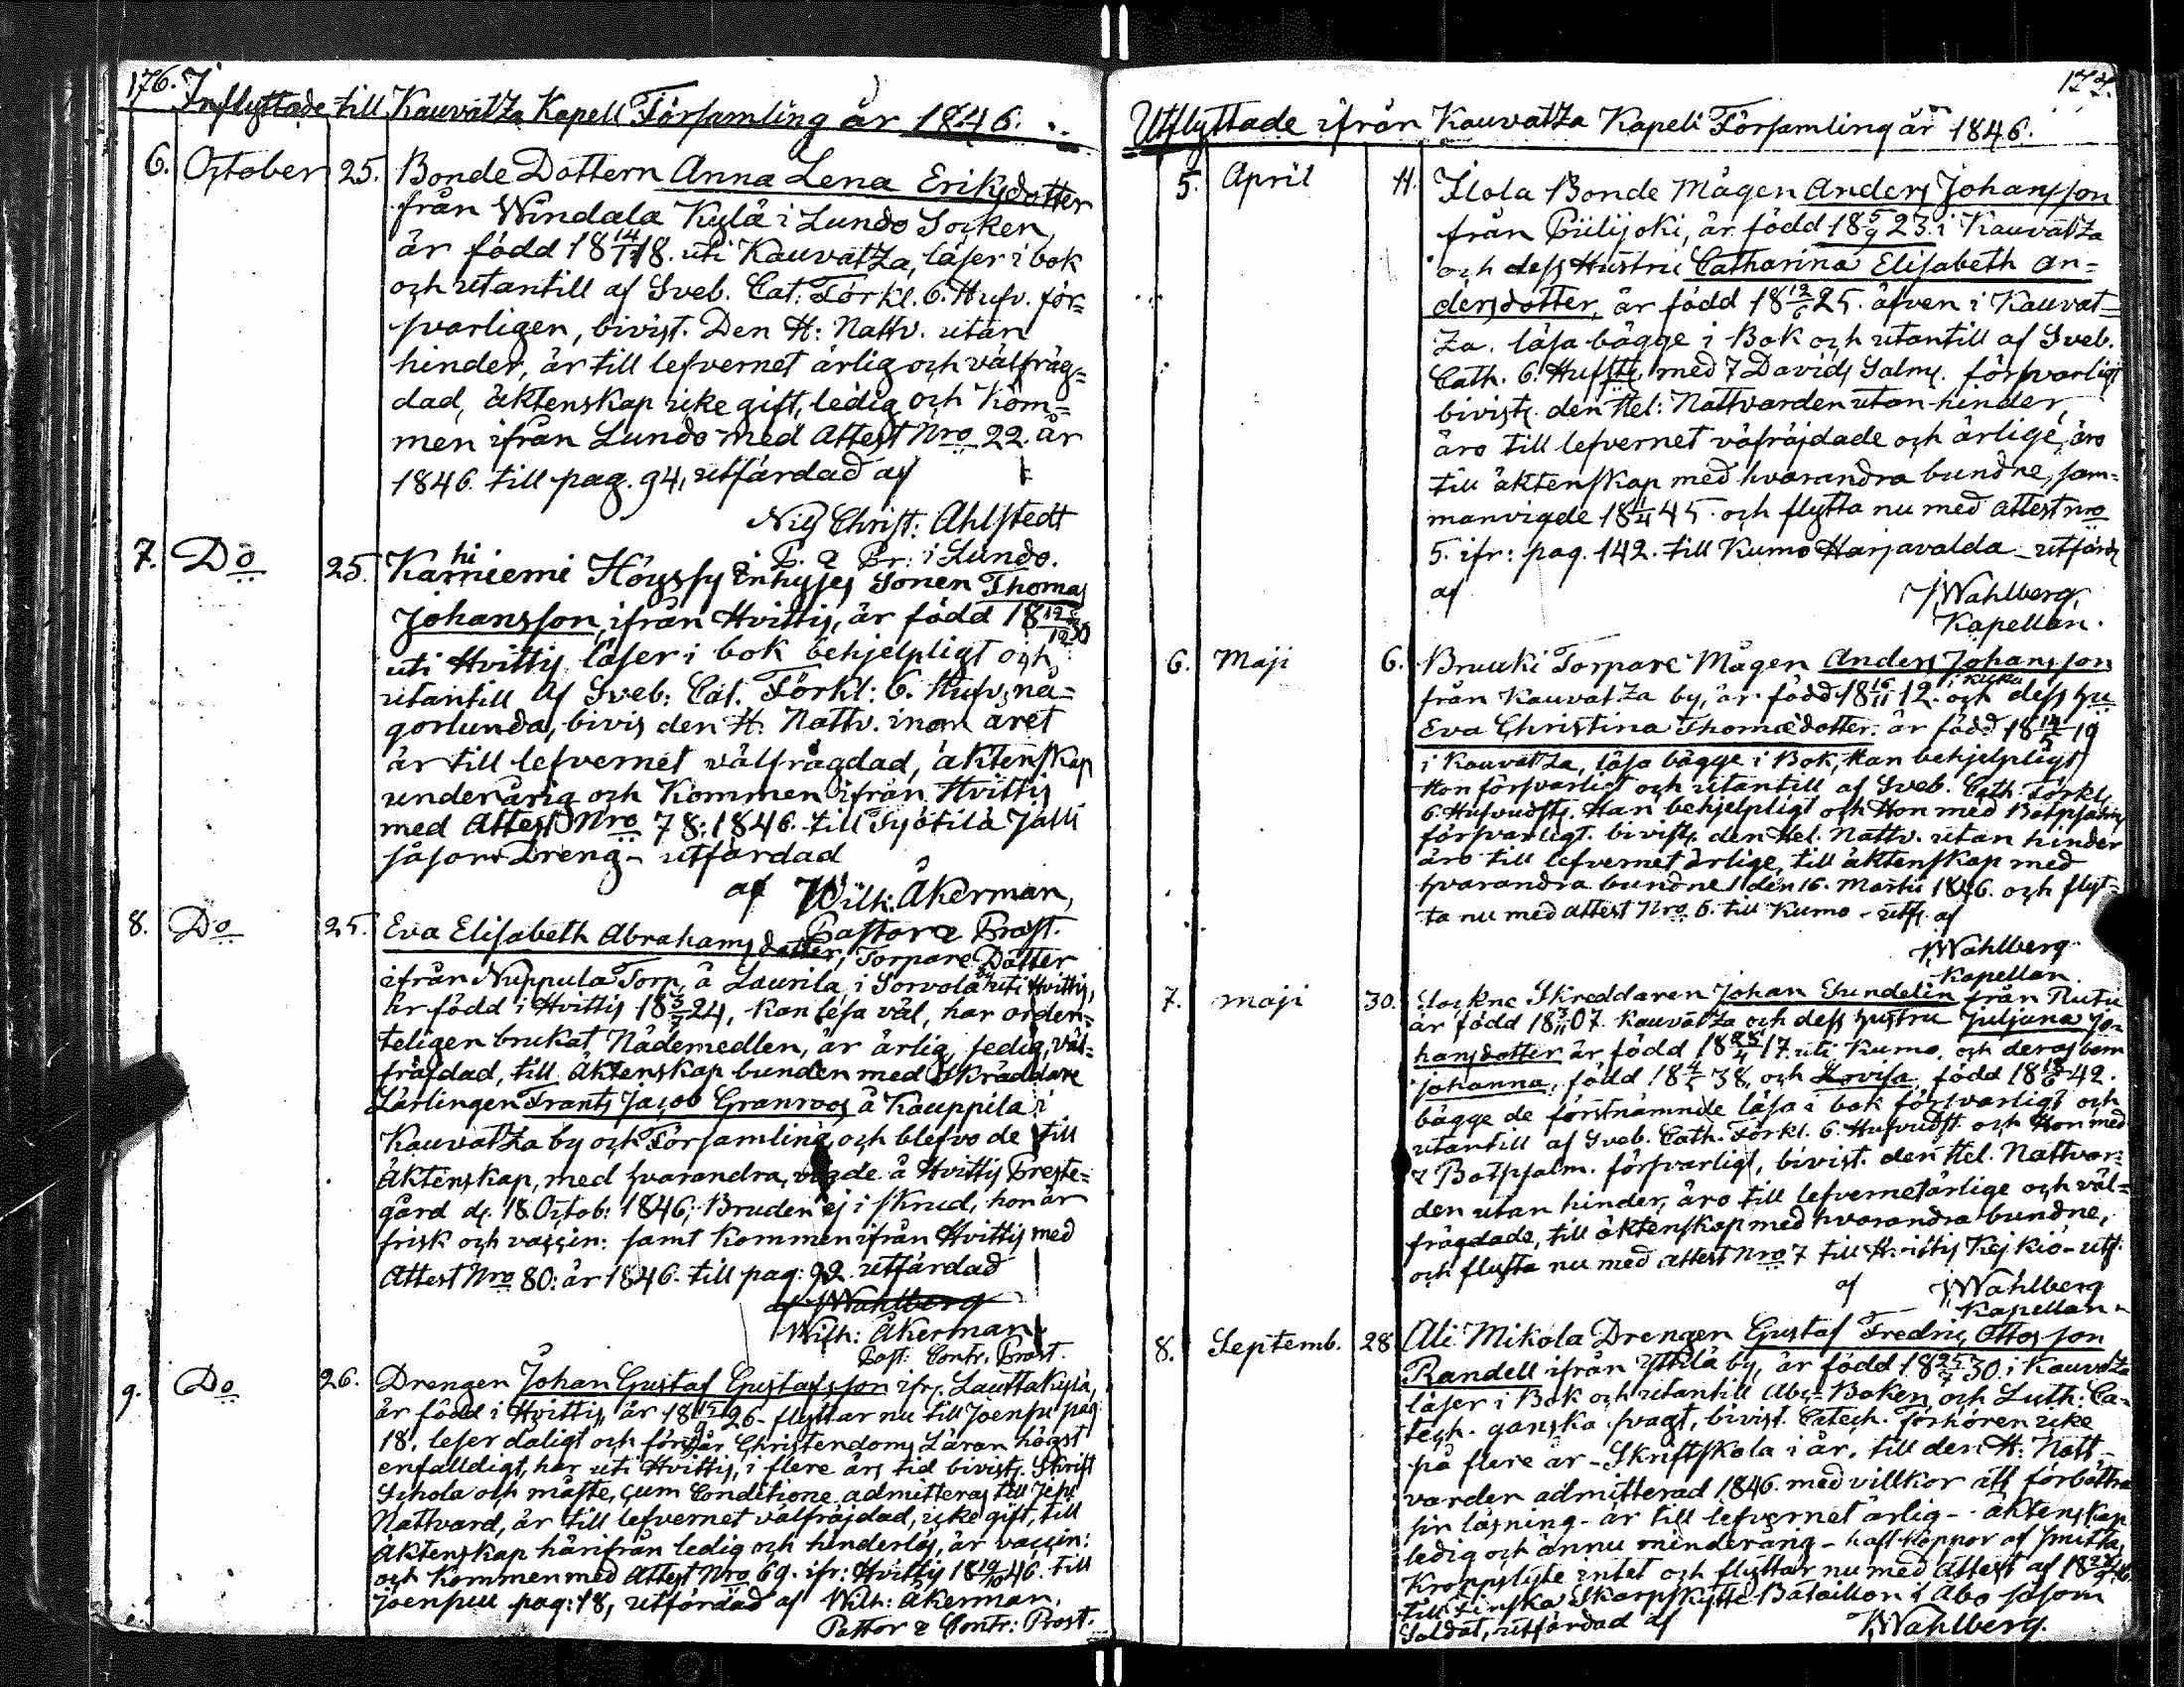 176.
Inflyttade till Kauvatza Kapell Församling år 1846.
6. October 25. Bonde Dottern Anna Lena Eriksdotter
från Windala Kylä i Lundo Socken,
är född 18 14/11 18. uti Kauvatza, läser i bok
och utantill af Sveb. Cat. Förkl. 6. Hufv. för=
svarligen, bivist. Den H: Nattv. utan
hinder, är till lefvernet ärlig och välfräg=
dad, äktenskap icke gift, ledig och Kom=
men ifrån Lundo med Attest Nro 22. år
1846. till pag. 94, utfärdad af
Nils Christ: Ahlstedt
P. & Pr: i Lundo.
7. Do 25. Karhiniemi Höyssy Inhyses Sonen Thomas
Johansson, ifrån Hvittis, är född 18
uti Hvittis läser i bok behjelpligt och
utantill af Sveb: Cat. Förkl: 6. Hufv; nå=
gorlunda, bivis den H. Nattv. inom året
är till lefvernet välfrägdad, äktenskap
underårig och Kommen ifrån Hvittis
med Attest Nro 78: 1846. till Jalli
såsom Dreng - utfärdad
af Wilh: Åkerman,
Pastor & Prost.
8. Do 25. Eva Elisabeth Abrahams dotter, Torpare Dotter
ifrån Nuppula Torp, å Laurila i Sorvola by uti Hvittis,
är född i Hvittis 18 3/7 24, kan läsa väl, har orden=
teligen brukat Nådemedlen, är ärlig, sedig, väl=
fräjdad, till Äktenskap bunden med Skräddare
Lärlingen Frants Jacob Granroos å Kauppila i
Kauvatza by och Församling och blefvo de till
Äktenskap, med hvarandra, vigde å Hvittis Preste=
gård d. 18. Octob: 1846; Bruden ej i skrud, hon är
frisk och vaccin: samt Kommen ifrån Hvittis med
Attest Nro 80: år 1846. till pag: 92 utfärdad
af JWahlberg
Wilh: Åkerman
Past: Contr. Prost.
9. Do 26. Drengen Johan Gustaf Gustafsson ifr. Lauttakylä,
är född i Hvittis, år 18 26 - flyttar nu till Joenpu pag
18. leser daligt och förstår Christendoms Läran högst
enfalldigt, har uti Hvittis, i flere års tid bivist. Skrift
Schola och måste, cum Conditione admitteras till
Nattvard, är till lefvernet välfräjdad, icke gift, till
Äktenskap härifrån ledig och hinderlös, är vaccin:
och Kommen med Attest Nro 69. ifr: Hvittis 18 19/10 46. till
Joenpuu pag: 18, utfärdad af Wilh: Åkerman.
Pastor & Contr: Prost.
177.
Utflyttade ifrån Kauvatza Kapell Församling år 1846.
5. April 11. Ilola Bonde Mågen Anders Johansson
från Piilijoki, är född 18 5/9 23. i Kauvatza
och dess Hustru Catharina Elisabeth An=
dersdotter, är född 18 12/6 25. äfven i Kauvat=
za. läsa bägge i Bok och utantill af Sveb.
Cath. 6. Hufst. med 7 Davids Salms. försvarligt
bivists. den Hel: Nattvarden utan hinder,
äro till lefvernet väfräjdade och ärlige, äro
till äktenskap med hvarandra bundne, sam=
manvigde 18 11/4 45. och flytta nu med attest nro
5. ifr: pag. 142. till Kumo Harjavalda - utfärd
af JWahlberg,
Kapellan.
6. Maji 6. Bruuki Torpare Mågen Anders Johansson
från Kauvatza by, är född 18 16/11 12. och dess hu
Eva Christina Thomædotter. är född 18 14/5 19
i Kauvatza, läsa bägge i Bok, Han behjelpligt
Hon försvarligt och utantill af Sveb. Cath. Förkl.
6. Hufvudst. Han behjelpligt och Hon med Botpsalms
försvarligt. bivists. den Hel. Nattv. utan hinder
äro till lefvernet ärlige, till äktenskap med
hvarandra bundne den 16. Martii 1846. och flyt=
ta nu med attest Nro 6. till Kumo - utf. af
JWahlberg
Kapellan
7. maji 30. Sockne Skreddaren Johan Sundelin från Rutu
är född 18 3/11 07. Kauvatza och dess hustru Juljana Jo=
hansdotter är född 18 25/4 17. uti Kumo, och deras barn
Johanna, född 18 4/5 38, och Lovisa, född 18 42.
bägge de förstnämnde läsa i bok försvarligt och
utantill af Sveb. Cath. Förkl. 6. Hufvudst. och Hon med
7 Botpsalm. försvarligt, bivist. den Hel. Nattvar=
den utan hinder, äro till lefvernet ärlige och väl=
frägdade, till äktenskap med hvarandra bundne,
och flytta nu med attest Nro 7 till Hvittis Kejkiö - utf.
af JWahlberg
Kapellan
8. Septemb. 28 Ali Mikola Drengen Gustaf Fredric Ottosson
Randell ifrån Yttilä by, är född 18 30 i Kauvatza
läser i Bok och utantill Abc-Boken och Luth: Ca=
tech. ganska svagt, bivist. Catech. Förhören icke
på flere år - Skriftskola i år, till den H: Natt=
varden admitterad 1846. med villkor att förbättra
sin läsning - är till lefvernet ärlig - äktenskap
ledig och ännu minderårig - haft koppor af smitta,
Kroppslyte intet och flyttar nu med Attest af 18
till Finska Skarpskytte Bataillon i Åbo såsom
Soldat, utfärdad af JWahlberg.